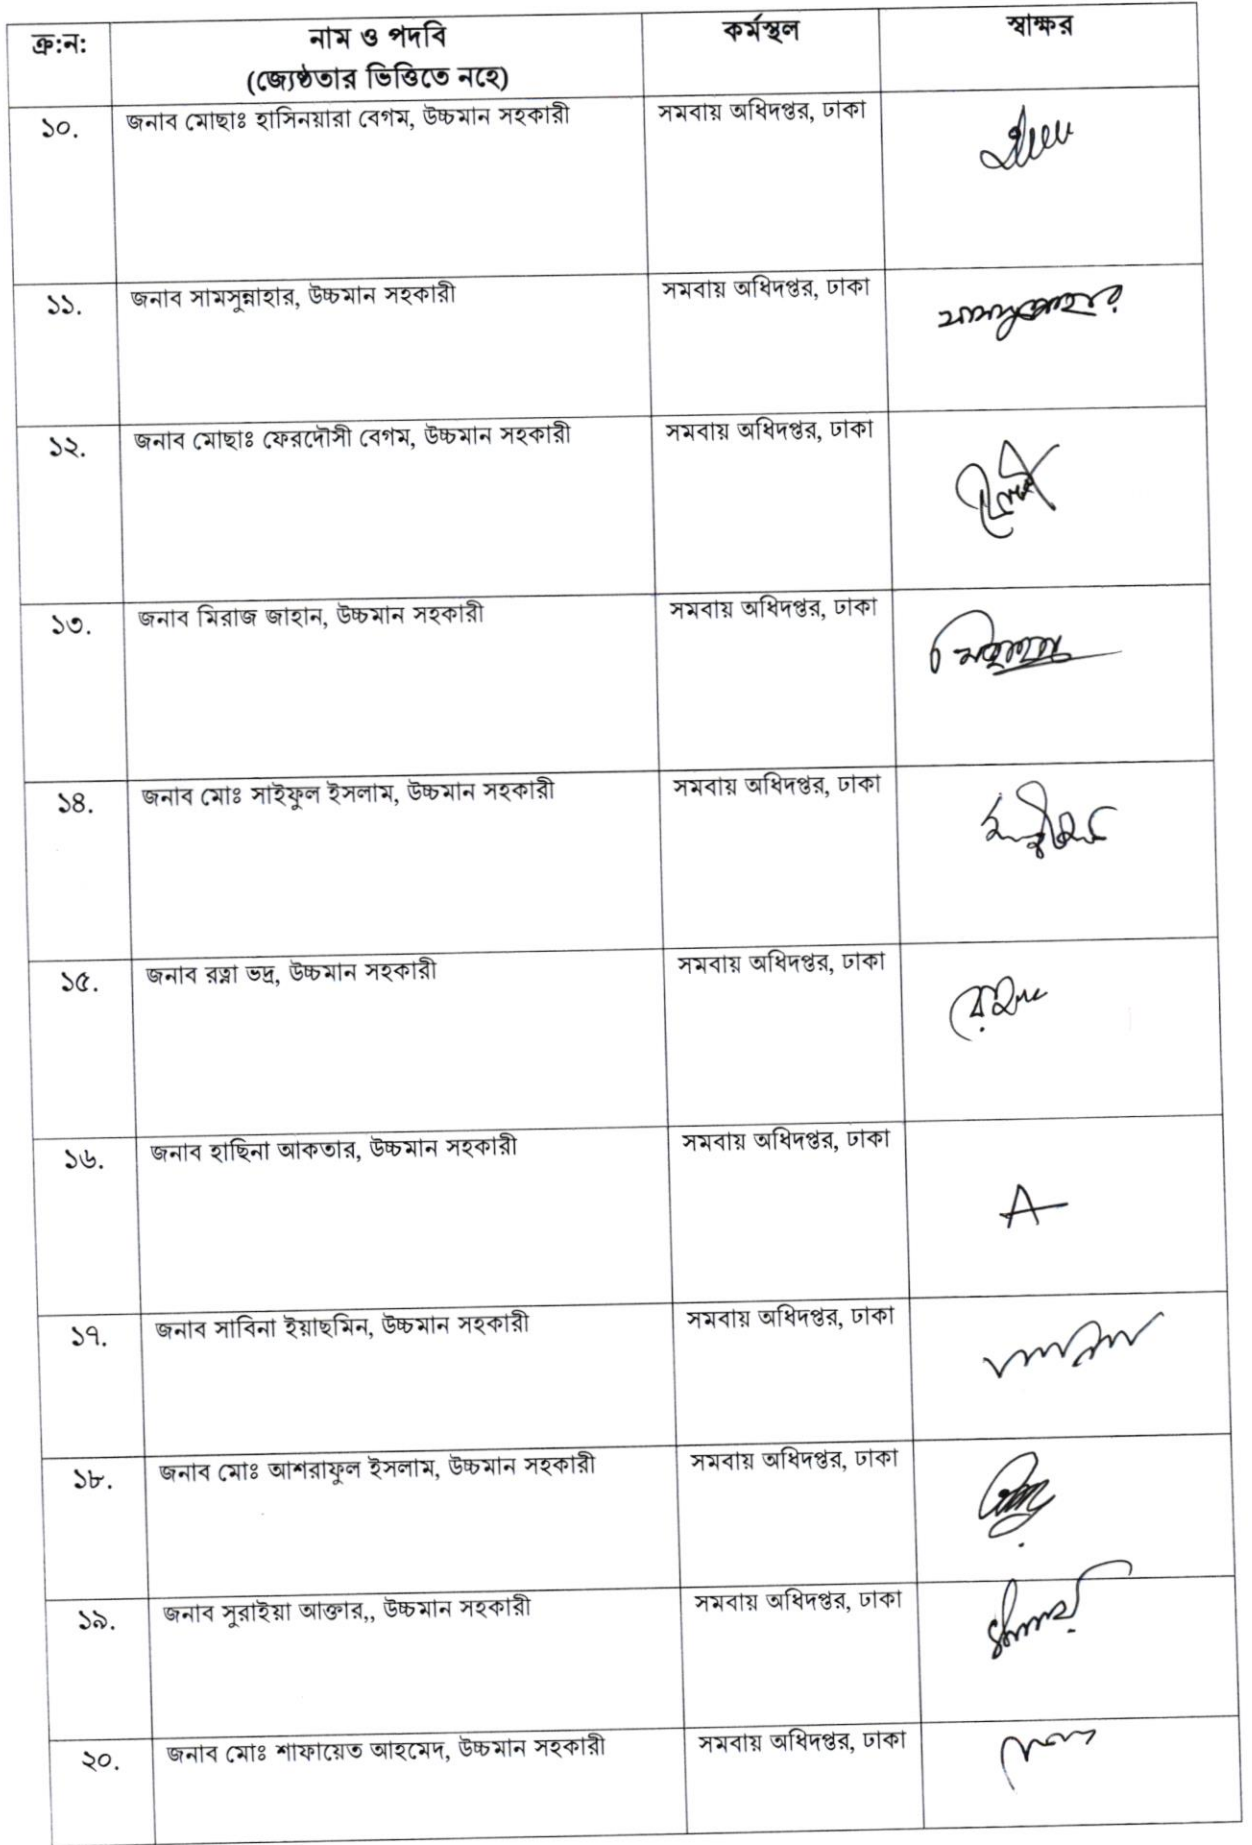 ক্র:ন: নাম ও পদবি কর্মস্থল স্বাক্ষর
(জ্যেষ্ঠতার ভিত্তিতে নহে)
১০. জনাব মোছাঃ হাসিনয়ারা বেগম, উচ্চমান সহকারী সমবায় অধিদপ্তর, ঢাকা
১১. জনাব সামসুন্নাহার, উচ্চমান সহকারী সমবায় অধিদপ্তর, ঢাকা
১২. জনাব মোছাঃ ফেরদৌসী বেগম, উচ্চমান সহকারী সমবায় অধিদপ্তর, ঢাকা
১৩. জনাব মিরাজ জাহান, উচ্চমান সহকারী সমবায় অধিদপ্তর, ঢাকা
১৪. জনাব মোঃ সাইফুল ইসলাম, উচ্চমান সহকারী সমবায় অধিদপ্তর, ঢাকা
১৫. জনাব রত্না ভদ্র, উচ্চমান সহকারী সমবায় অধিদপ্তর, ঢাকা
১৬. জনাব হাছিনা আকতার, উচ্চমান সহকারী সমবায় অধিদপ্তর, ঢাকা
১৭. জনাব সাবিনা ইয়াছমিন, উচ্চমান সহকারী সমবায় অধিদপ্তর, ঢাকা
১৮. জনাব মোঃ আশরাফুল ইসলাম, উচ্চমান সহকারী সমবায় অধিদপ্তর, ঢাকা
১৯. জনাব সুরাইয়া আক্তার,, উচ্চমান সহকারী সমবায় অধিদপ্তর, ঢাকা
২০. জনাব মোঃ শাফায়েত আহমেদ, উচ্চমান সহকারী সমবায় অধিদপ্তর, ঢাকা